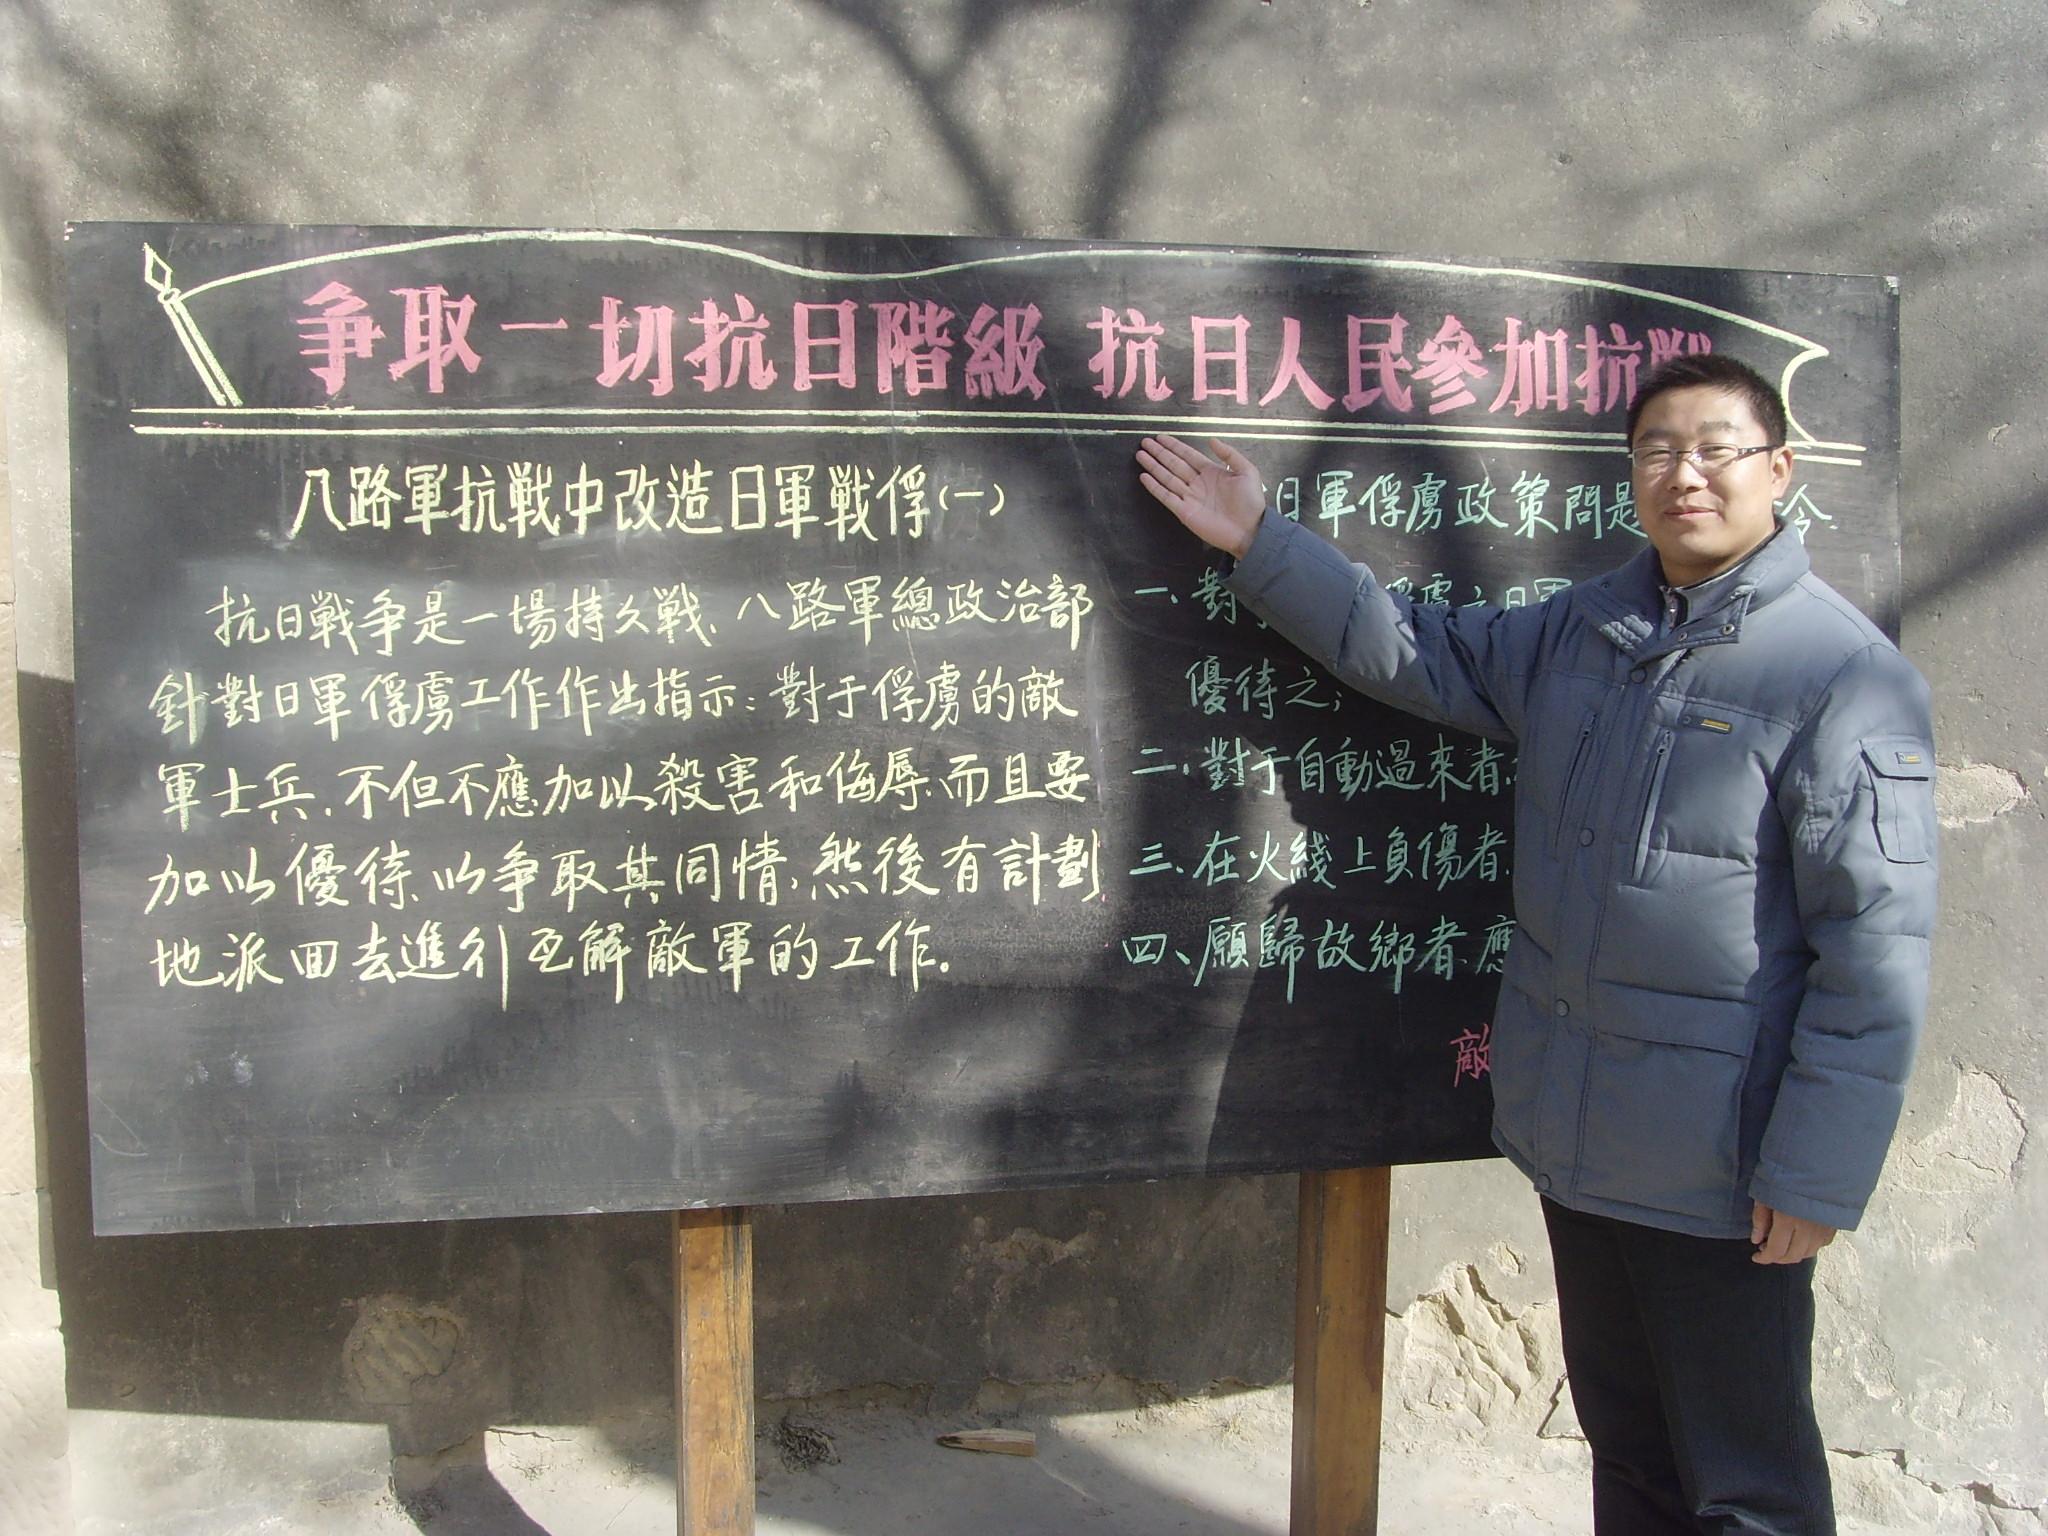 爭取一切抗日階級 抗日人民參加抗戰
八路軍抗戰中改造日軍戰俘(一)
抗日戰爭是一場持久戰、八路軍總政治部
針對日軍俘虜工作作出指示：對于俘虜的敵
軍士兵、不但不應加以殺害和侮辱、而且要
加以優待、以爭取其同情，然後有計劃
地派回去進行瓦解敵軍的工作。
日軍俘虜政策問題 令
一、對 俘虜之日軍
優待之；
二、對于自動過來者、
三、在火綫上負傷者、
四、願歸故鄉者、應
敵